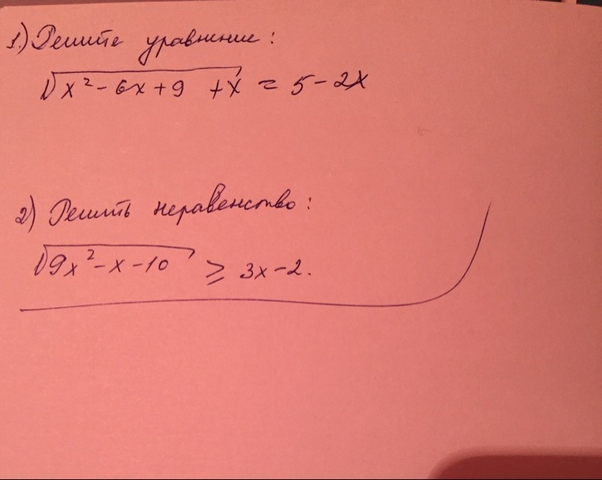 1.) Решите уравнение:
√x²-6x+9 +x = 5-2x
2) Решить неравенство:
√9x²-x-10 ≥ 3x-2.